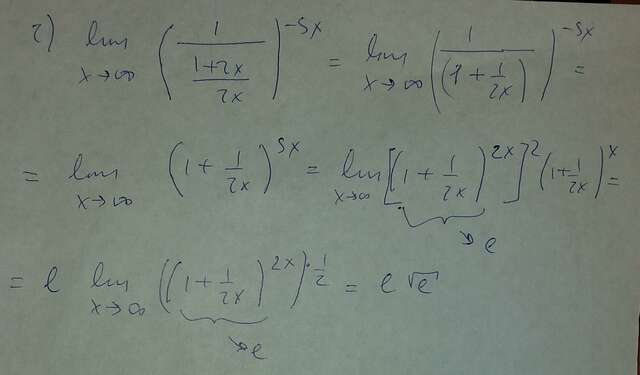 г) lim x→∞ (1/((1+2x)/(2x)))^(-5x) = lim x→∞ (1/(1+1/(2x)))^(-5x) =
= lim x→∞ (1+1/(2x))^(5x) = lim x→∞ [(1+1/(2x))^(2x)]^2 (1+1/(2x))^x =
→e
= e lim x→∞ ((1+1/(2x))^(2x))^(·1/2) = e√e
→e